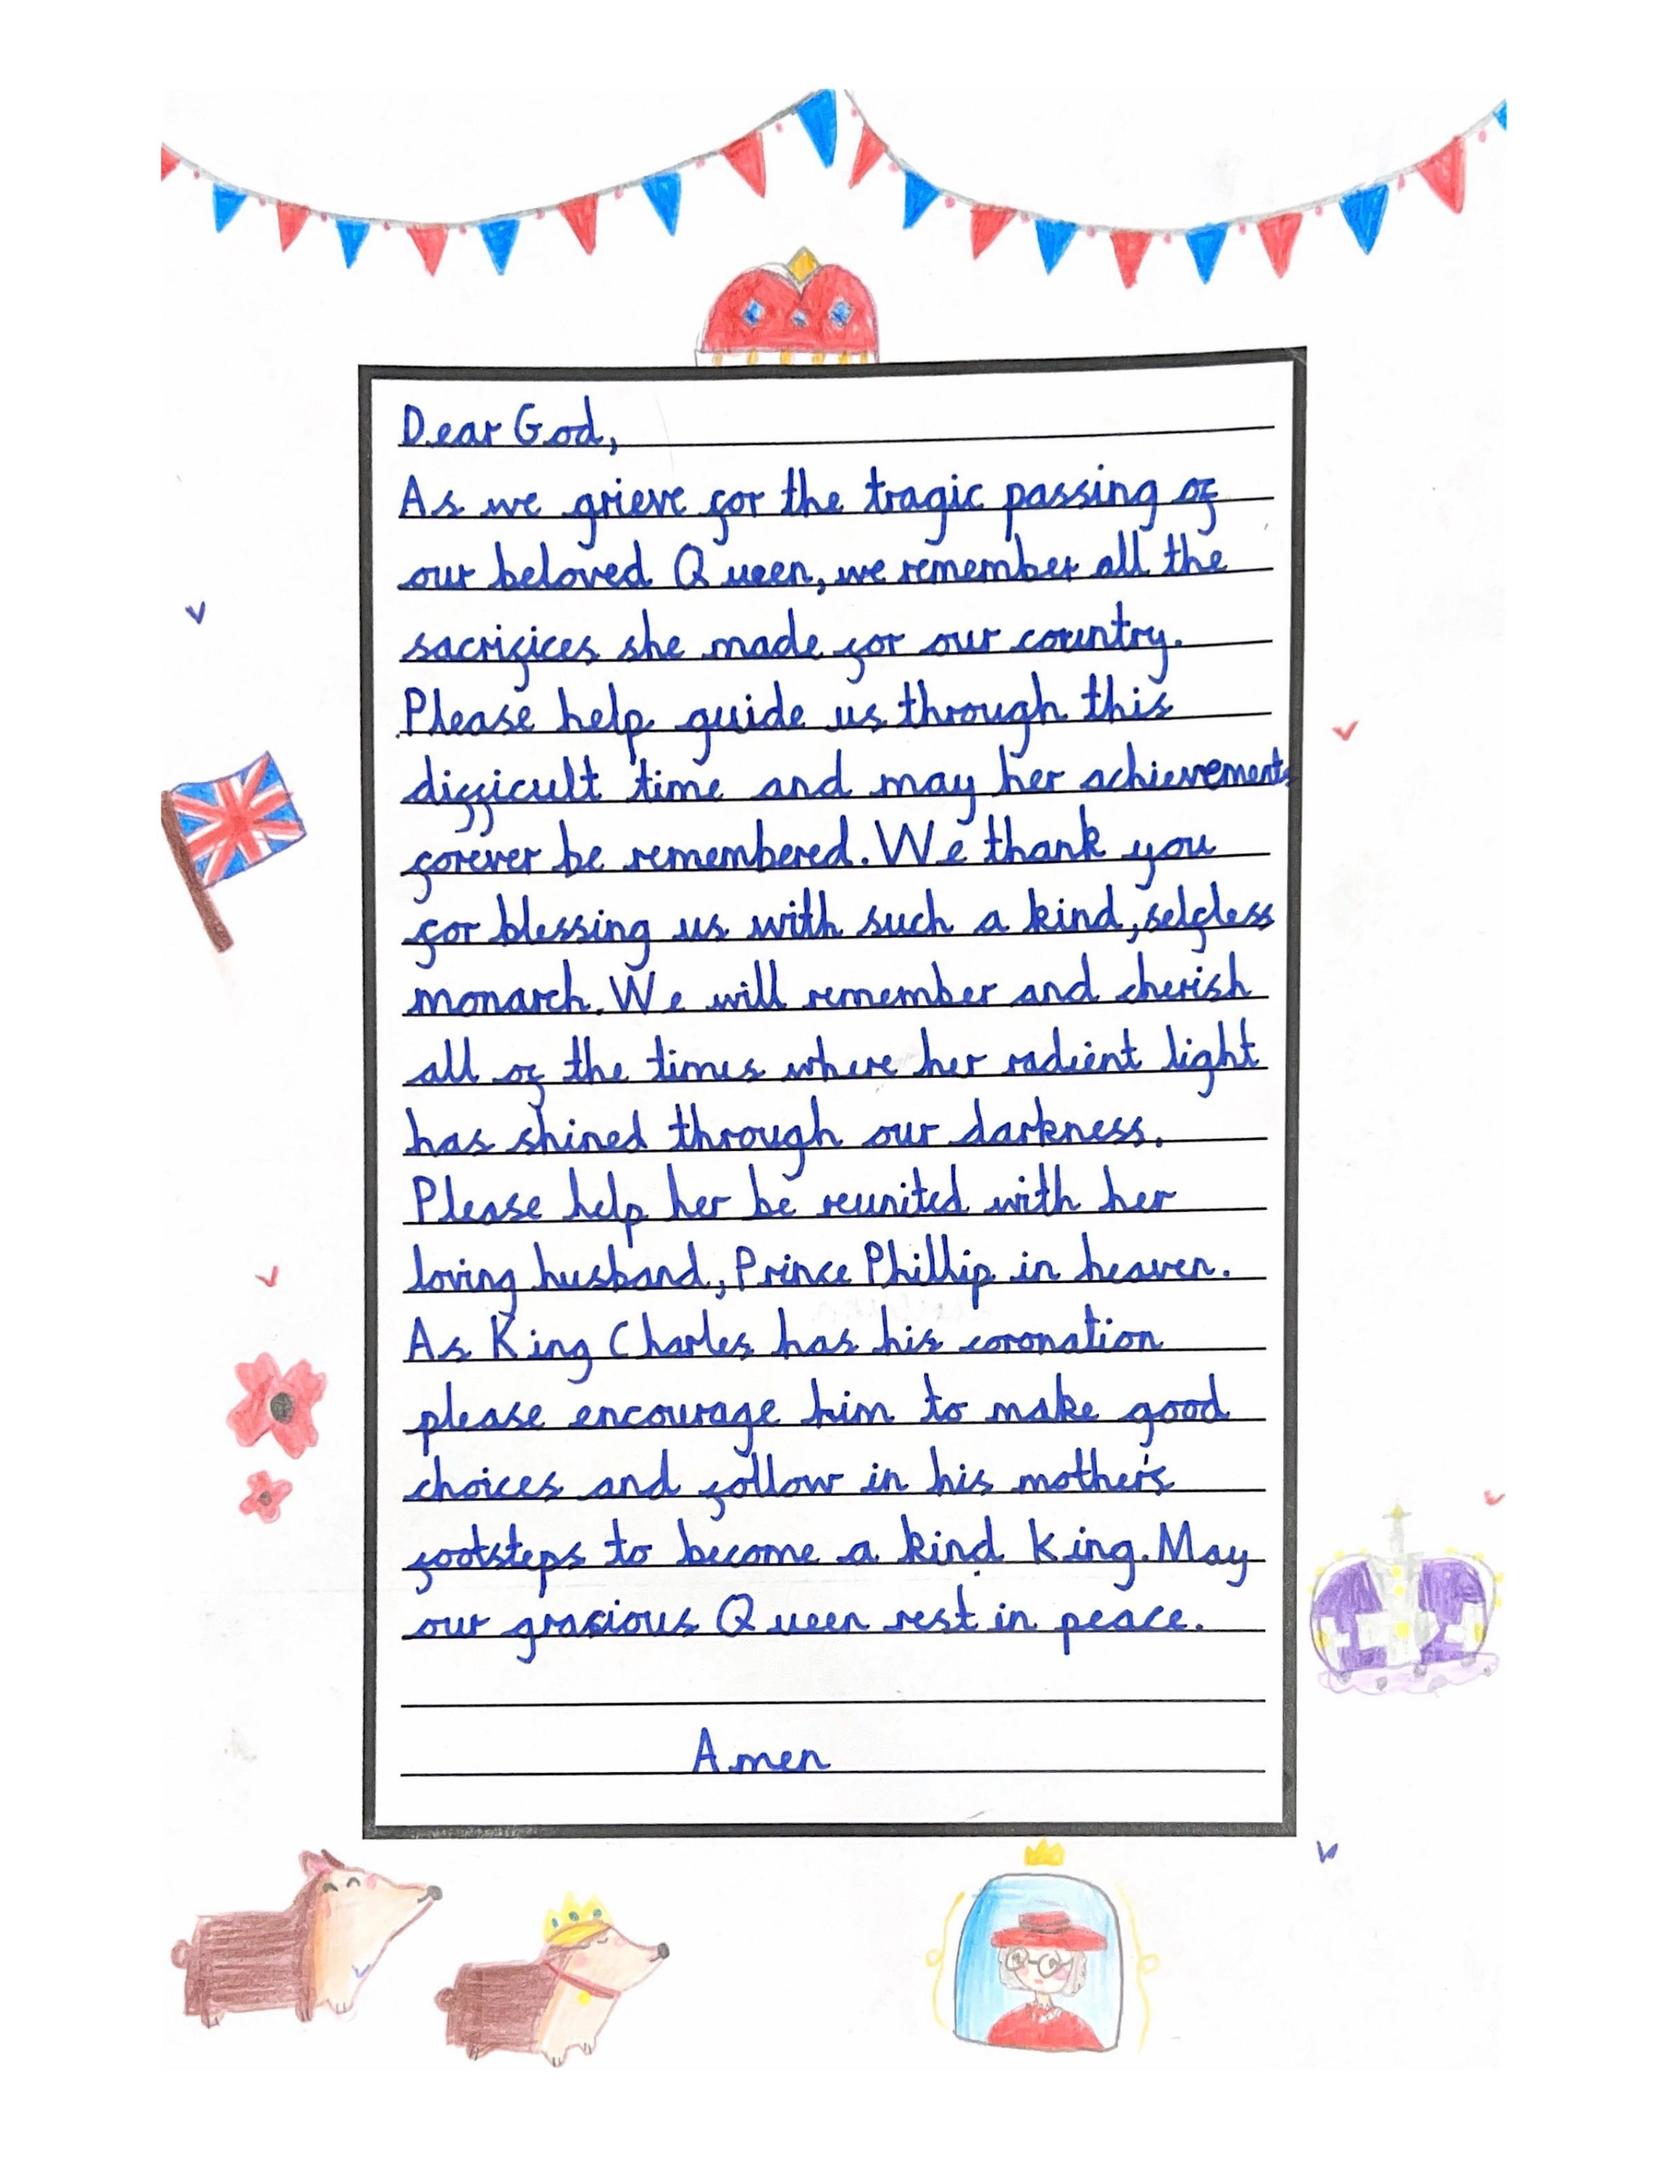 Dear God,
As we grieve for the tragic passing of
our beloved Queen, we remember all the
sacrifices she made for our country.
Please help guide us through this
difficult time and may her achievements
forever be remembered. We thank you
for blessing us with such a kind, selfless
monarch. We will remember and cherish
all of the times where her radient light
has shined through our darkness.
Please help her be reunited with her
loving husband, Prince Phillip in heaven.
As King Charles has his coronation
please encourage him to make good
choices and follow in his mother's
footsteps to become a kind King. May
our gracious Queen rest in peace.
Amen